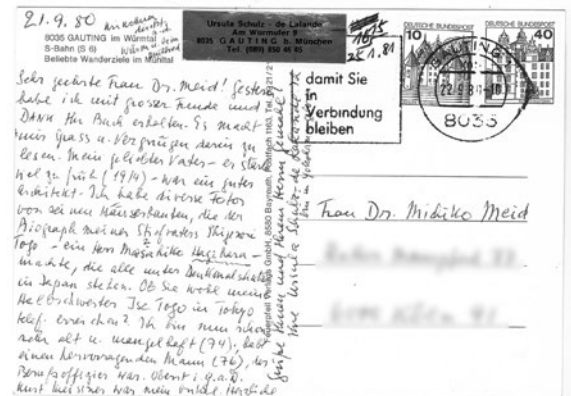 21.9.80
8035 GAUTING im Würmtal
S-Bahn (S 6)
Beliebte Wanderziele im Mühltal
Ursula Schulz - de Lalande
Am Wurmufer 9
8035 GAUTING b. München
Tel. (089) 850 46 05
25.1.81
damit Sie
in
Verbindung
bleiben
DEUTSCHE BUNDESPOST
10
DEUTSCHE BUNDESPOST
40
GAUTING
22.9.80
8035
Sehr geehrte Frau Dr. Meid! Gestern
habe ich mit grosser Freude und
DANK Ihr Buch erhalten. Es macht
mir Spass u. Vergnügen darin zu
lesen. Mein geliebter Vater - er starb
viel zu früh (1914) - war ein guter
Architekt. Ich habe diverse Fotos
von seinen Häuserbauten, die der
Biograph meines Stiefvaters Shigenori
Togo - ein Herr Masahiko Hagihara -
machte, die alle unter Denkmalschutz
in Japan stehen. Ob Sie wohl meine
Halbschwester Ise Togo in Tokyo
telef. erreichen? Ich bin nun schon
sehr alt u. mangelhaft (74), habe
einen hervorragenden Mann (76), der
Berufsoffizier war. Oberst i.G.a.D.
Kurt Meissner war mein Onkel. Herzliche
Grüße Ihnen und Ihrem Herrn Gemahl!
Ihre Ursula Schulz-de Lalande
Feuerpfeil Verlags GmbH, 8580 Bayreuth, Postfach 1163, Tel. 0921/
Frau Dr. Michiko Meid